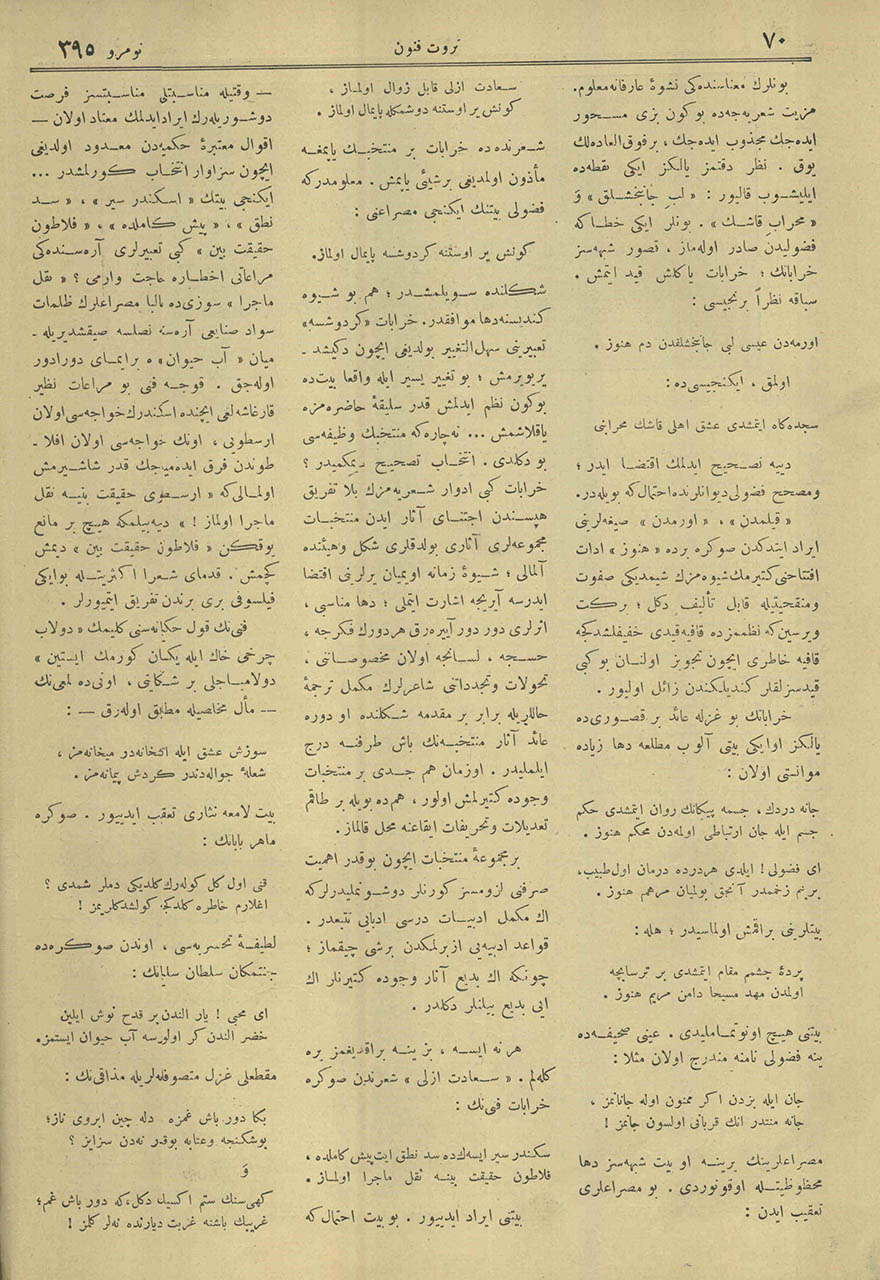 ٧٠
ثروت فنون
نومرو ٣٩٥
بونلرك معناسنده‌كی نشوهٔ عارفانه معلوم.
مزیت شعریه‌جه‌ده بوكون بزی مسحور
ایده‌جك مجذوب ایده‌جك ، بر فوق‌العاده‌لك
یوق . نظر دقتمز یالكز ایكی نقطه‌ده
ایلیشوب قالیور : « لب جانبخشلق » وَ
« محراب قاشك » . بونلر ایكی خطا كه
فضولیدن صادر اوله‌ماز ، قصور شبهه‌سز
خراباتك ؛ خرابات یاكلش قید ایتمش .
سباقه نظراً برنجیسی :
اورمه‌دن عیسی لبی جانبخشلقدن دم هنوز .
اولمق ، ایكنجیسی‌ده :
سجده‌كاه ایتمشدی عشق اهلی قاشك محرابنی
دییه تصحیح ایدلمك اقتضا ایدر ؛
ومصحح فضولی دیوانلرنده احتمال كه بویله‌در.
« قیلمدن » ، « اورمدن » صیغه‌لرینی
ایراد ایتدكدن صوكره برده « هنوز » ادات
افتتاحنی كتیرمك شیوه‌مزك شیمدیكی صفوت
ومنقحیتیله قابل تألیف دكل ؛ بركت
ویرسین كه نظممزده قافیه قیدی خفیفلشدكجه
قافیه خاطری ایچون تجویز اولنان بو كبی
قیدسزلقلر كندیلكندن زائل اولیور .
خراباتك بو غزله عائد بر قصوری‌ده
یالكز او ایكی بیتی آلوب مطلعه دها زیاده
موانستی اولان :
جانه دردك ، جسمه پیكانك روان ایتمشدی حكم
جسم ایله جان ارتباطی اولمه‌دن محكم هنوز .
ای فضولی ! ایلدی هر درده درمان اول طبیب،
بر بنم زخممدر آنجق بولمیان مرهم هنوز .
بیتلرینی براقمش اولماسیدر ؛ هله :
پردهٔ چشمم مقام ایتمشدی بر ترسابچه
اولمدن مهد مسیحا دامن مریم هنوز .
بیتنی هیچ اونوتمامالیدی . عینی صحیفه‌ده
ینه فضولی نامنه مندرج اولان مثلا :
جان ایله بزدن اكر ممنون اوله جانانمز ،
جانه منتدر انك قربانی اولسون جانمز !
مصراعلرینك یرینه او بیت شبهه‌سز دها
محظوظیتله اوقونوردی . بو مصراعلری
تعقیب ایدن :
سعادت ازلی قابل زوال اولماز ،
كونش یر اوستنه دوشمكله پایمال اولماز .
شعرنده‌ده خرابات بر منتخبك یاپمغه
مأذون اولمدیغی بر شیئی یاپمش . معلومدر كه
فضولی بیتنك ایكنجی مصراعنی :
كونش یر اوستنه كر دوشسه پایمال اولماز.
شكلنده سویلمشدر ؛ هم بو شیوه
كندیسنه دها موافقدر. خرابات «كر دوشسه»
تعبیرینی سهل‌التغییر بولدیغی ایچون دكیشدـ
یریویرمش ؛ بو تغییر یسیر ایله واقعا بیت‌ده
بوكون نظم ایدلمش قدر سلیقهٔ حاضره‌مزه
یاقلاشمش ... نه چاره كه منتخبك وظیفه‌سی
بو دكلدی . انتخاب تصحیح دیمكمیدر ؟
خرابات كبی ادوار شعریه‌مزك بلا تفریق
هپسندن اجتنای آثار ایدن منتخبات
مجموعه‌لری آثاری بولدقلری شكل وهیئنده
آلمالی ؛ شیوهٔ زمانه اویمیان یرلرینی اقتضا
ایدرسه آیریجه اشارت ایتملی ؛ دها مناسبی ،
اثرلری دور دور آییره‌رق هر دورك فكرجه ،
حسجه ، لسانجه اولان مخصوصاتنی ،
تحولات وتجدداتنی شاعرلرك مكمل ترجمهٔ
حاللریله برابر بر مقدمه شكلنده او دوره
عائد آثار منتخبه‌نك باش طرفنه درج
ایلملیدر . اوزمان هم جدی بر منتخبات
وجوده كتیرلمش اولور ، هم‌ده بویله بر طاقم
تعدیلات وتحریفات ایقاعنه محل قالماز.
بر مجموعهٔ منتخبات ایچون بوقدر اهمیت
صرفنی لزومسز كورنلر دوشونملیدرلر كه
اك مكمل ادبیات درسی ادبایی تتبعدر .
قواعد ادبیه‌یی ازبرلمكدن برشی چیقماز ؛
چونكه اك بدیع آثار وجوده كتیرنلر اك
ایی بدیع بیلنلر دكلدر .
هر نه ایسه ، بز ینه براقدیغمز یره
كله‌لم . « سعادت ازلی » شعرندن صوكره
خرابات فنی‌نك :
سكندر سیر ایسه‌ك‌ده سد نطق ایت پیش كاملده ،
فلاطون حقیقت بینه نقل ماجرا اولماز .
بیتنی ایراد ایدییور . بو بیت احتمال كه
— وقتیله مناسبتلی مناسبتسز فرصت
دوشوریله‌رك ایراد ایدلمك معتاد اولان —
اقوال معتبرهٔ حكمیه‌دن معدود اولدیغی
ایچون سزاوار انتخاب كورلمشدر ...
ایكنجی بیتك « اسكندر سیر » ، « سد
نطق » ، « پیش كاملده » ، « فلاطون
حقیقت بین » كبی تعبیرلری آره‌سنده‌كی
مراعاتی اخطاره حاجت وارمی ؟ « نقل
ماجرا » سوزی‌ده غالبا مصراعلرك ظلمات
سواد صنایعی آره‌سنه نصلسه صیقشدیریلهـ
میان « آب حیوان » ه بر ایمای دورادور
اوله‌جق . قوجه فنی بو مراعات نظیر
قارغاشه‌لغی ایچنده اسكندرك خواجه‌سی اولان
ارسطویی ، اونك خواجه‌سی اولان افلاـ
طوندن فرق ایده‌میه‌جك قدر شاشیرمش
اولمالی كه « ارسطوی حقیقت بینه نقل
ماجرا اولماز ! » دیه‌بیلمكه هیچ بر مانع
یوقكن « فلاطون حقیقت بین » دیمش
كچمش . قدمای شعرا اكثریتله بو ایكی
فیلسوفی بری برندن تفریق ایتمیورلر .
فنی‌نك قول حكیمانه‌سنی كلیمك «دولاب
چرخی خاك ایله یكسان كورمك ایستین »
دولامباجلی بر شكایتی ، اونی‌ده لمعی‌نك
— مأل مخاصیله مطابق اوله‌رق — :
سوزش عشق ایله آتشخانه‌در میخانه‌مز ،
شعلهٔ جواله‌دندر كردش پیمانه‌مز .
بیت لامعه نثاری تعقب ایدییور . صوكره
ماهر بابانك :
قنی اول كل كوله‌رك كلدیكی دملر شمدی ؟
اغلارم خاطره كلدكجه كولشدكلریمز !
لطیفهٔ تحسریه‌سی ، اوندن صوكره‌ده
جنتمكان سلطان سلیمانك :
ای محبی ! یار الندن بر قدح نوش ایلین
خضر الندن كر اولورسه آب حیوان ایستمز.
مقطعلی غزل متصوفه‌لریله مذاقی‌نك :
بكا دور باش غمزه دله چین ابروی ناز؛
بو شكنجه وعتابه بوقدر نه‌دن سزایز ؟
وَ
كهی سنك ستم اكسیك دكل، كه دور باش غم؛
غریبك باشنه غربت دیارنده نه‌لر كلمز !